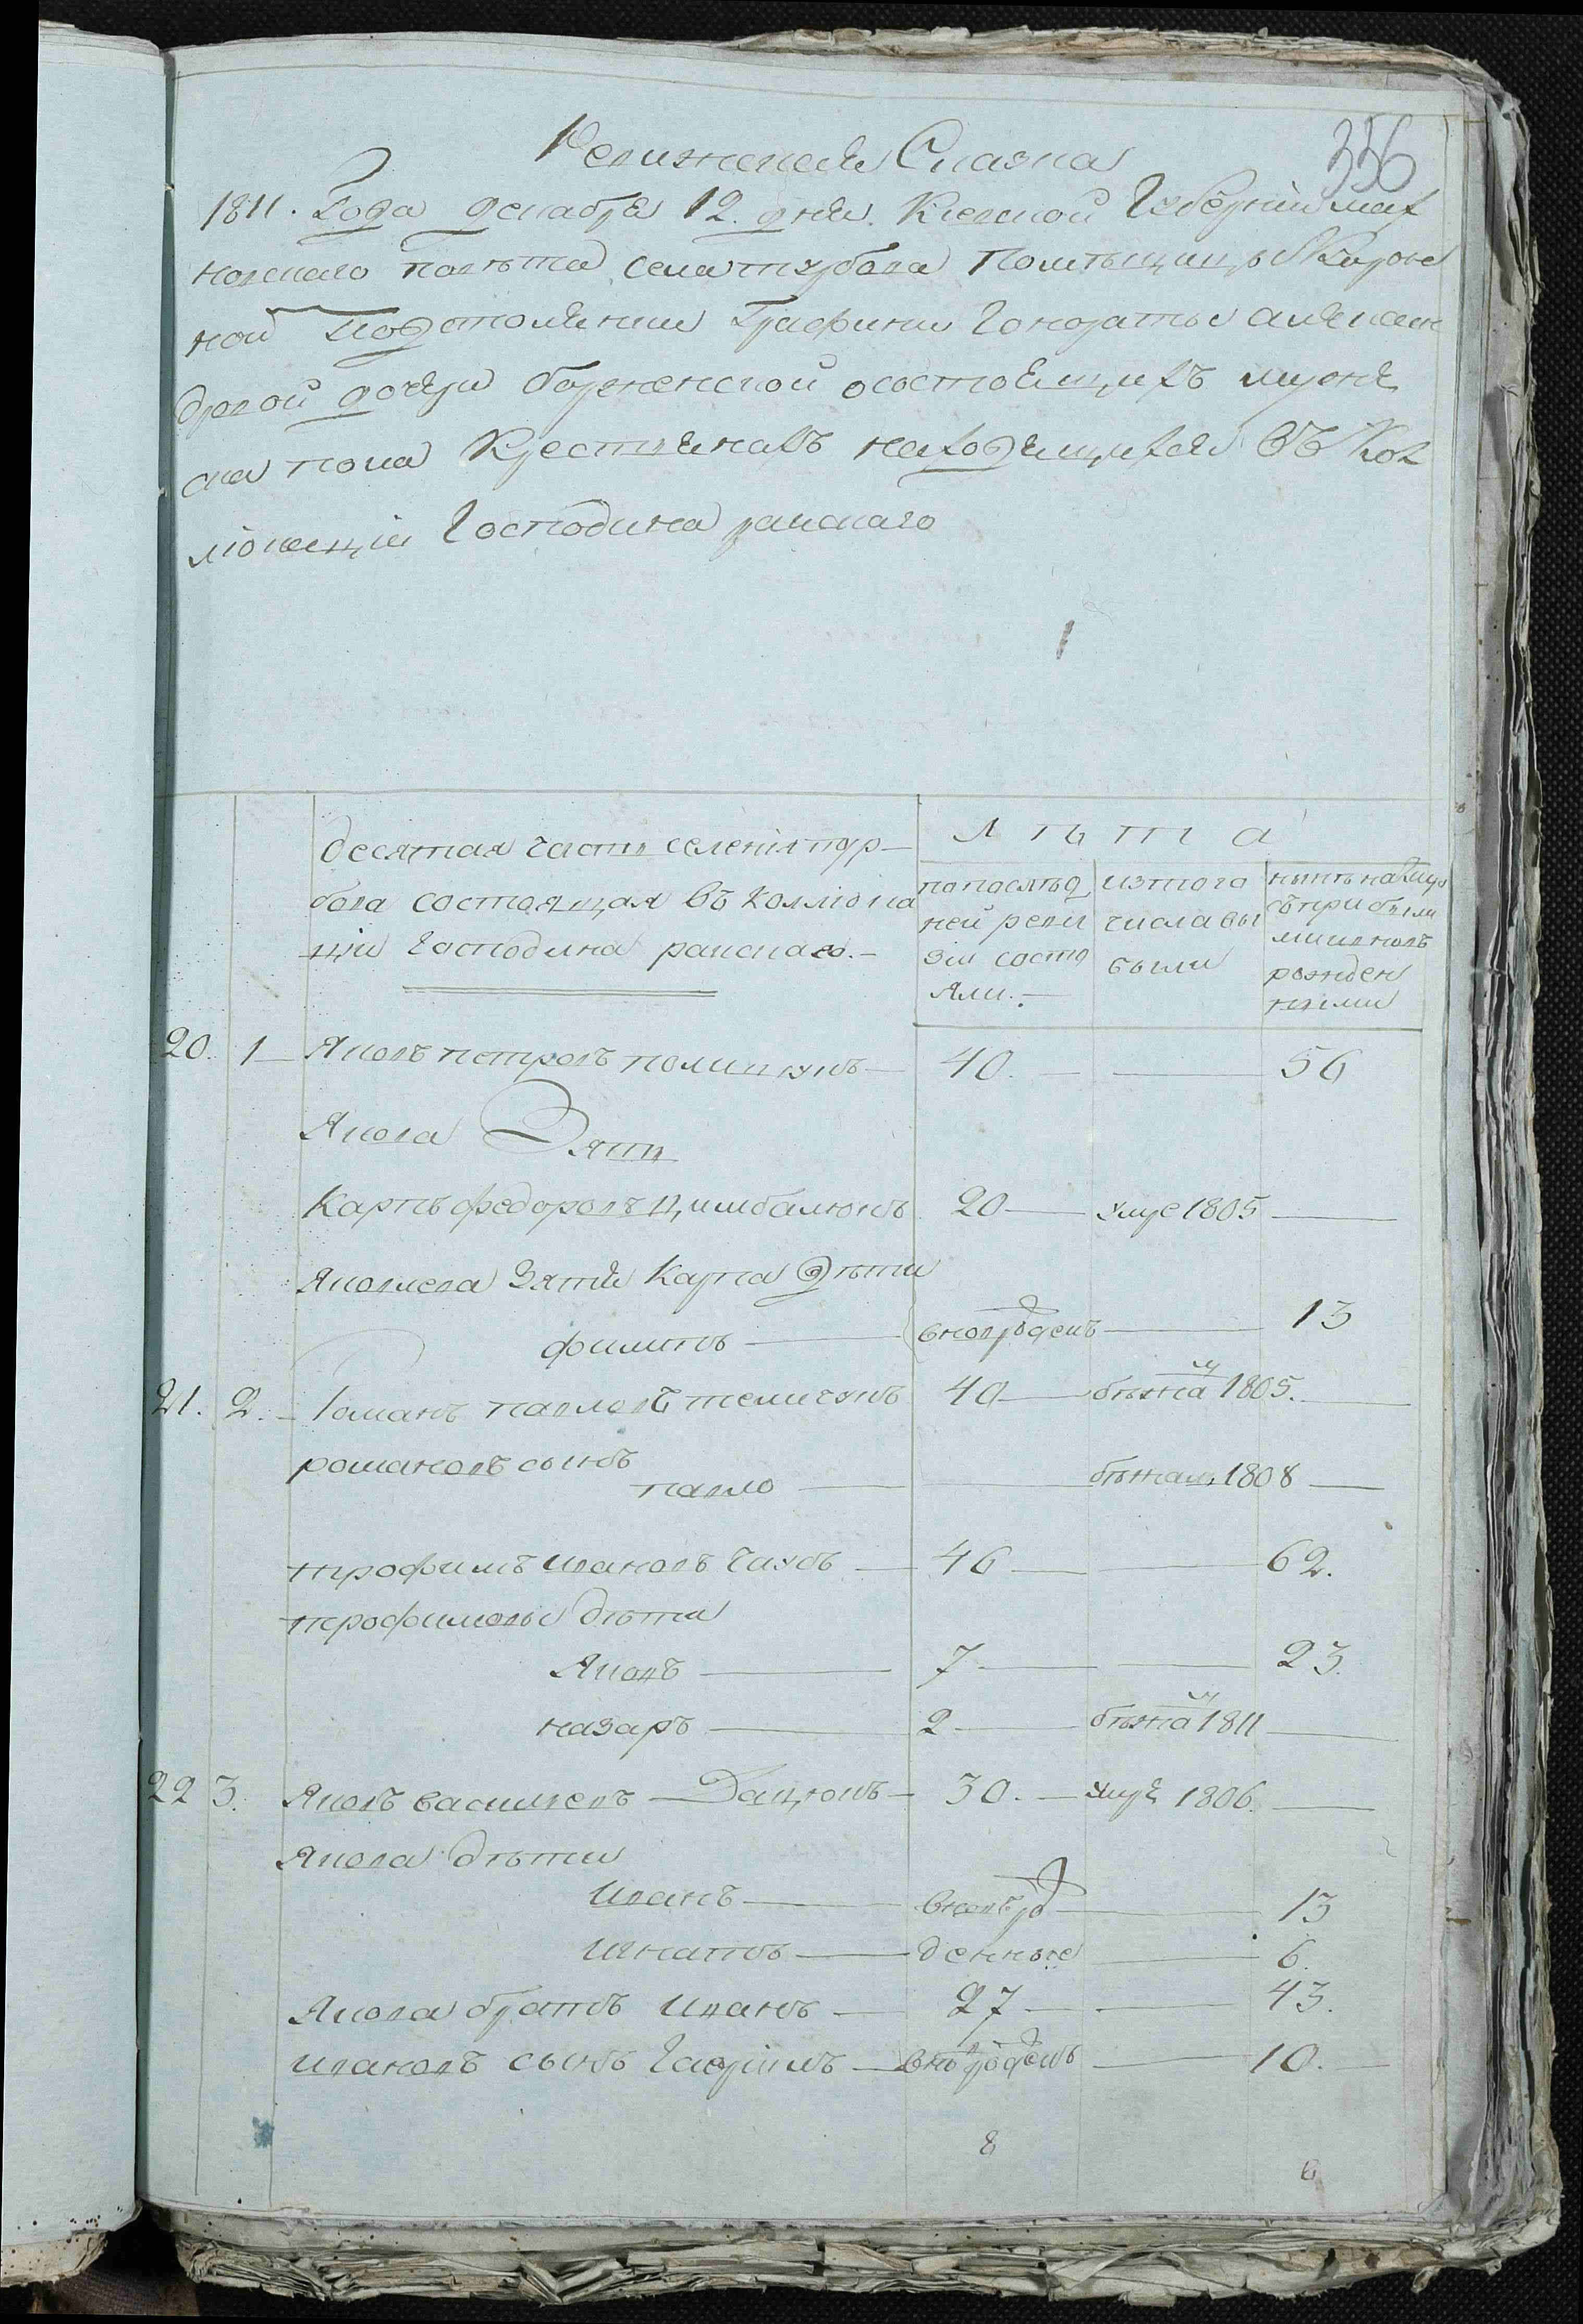 356
Ревижская Сказка
1811. Года декабря 12. дня. Киевской Губернїи мах
новскаго повѣта села турбова Помѣщицы Корон
ной Подстолянки Графини Гонораты алексан
дровой дочери борженской осостоящихъ мужес
ка пола Крестянахъ находящихся въ Кол
люкацїи Господина раискаго
десятая часть селенія тур-
бова состоящая въ коллюка
цїи Господина раискаго.-
Л ѣ т а
попослѣд
ней реви
зіи состо
яли.-
изтого
числа вы
были
нынѣ налицо
съприбыли
ми вновь
рожден
ными
20. 1 Яковъ петровъ полищукъ 40. 56
Якова Зять
Карпъ федоровъ Цимбалюкъ 20 умре 1805
Яковлева Зятя Карпа Дѣти
филипъ вноврожденъ 13
21. 2. Романъ павловъ телищукъ 40 бѣжалъ 1805.
романовъ сынъ
павло бѣжалъ 1808
трофимъ ивановъ Гаукъ 46 62.
трофимовы дѣти
Яковъ 7 23.
назаръ 2 бѣжалъ 1811
22 3. Яковъ васильевъ Дацюкъ 30. умре 1806.
Якова дѣти
Иванъ вновъ рож 13
Игнатъ денные 6.
Якова братъ иванъ 27 43.
ивановъ сынъ Гаврїилъ вновь рожденъ 10.
8 6